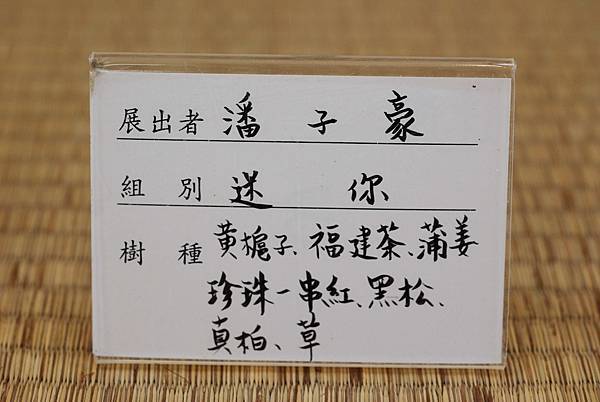 展出者 潘子豪
組別 迷你
樹種 黃梔子、福建茶、蒲姜
珍珠一串紅、黑松、
真柏、草